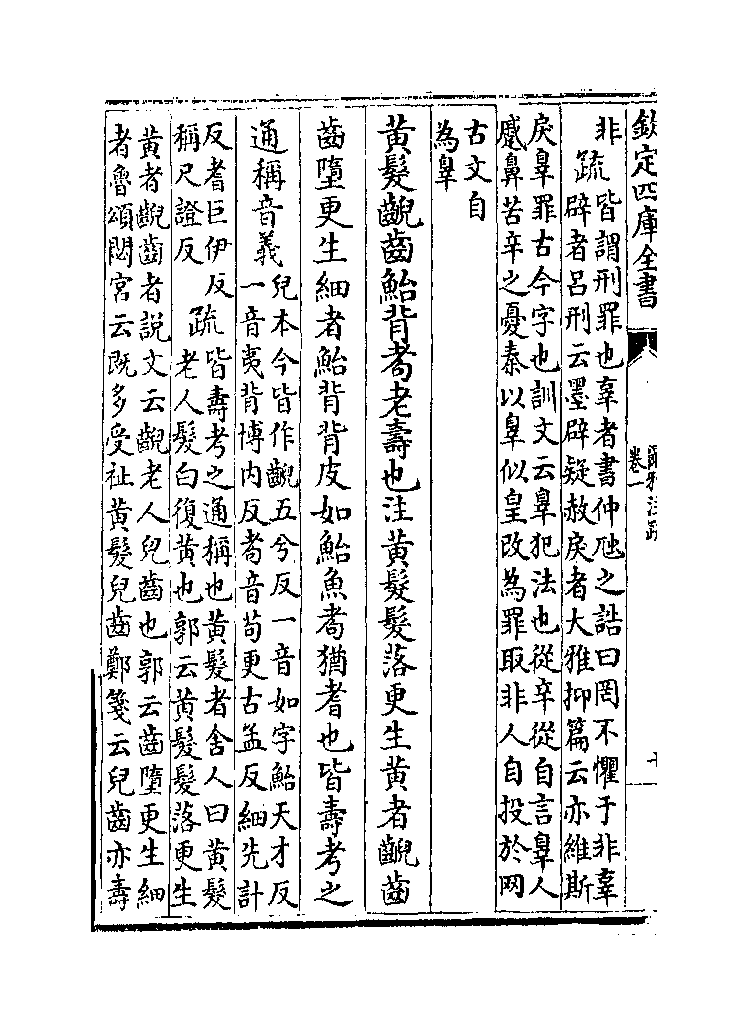 欽定四庫全書
爾雅注疏
卷一
非
疏
皆謂刑罪也辜者書仲虺之誥曰罔不懼于非辜
辟者呂刑云墨辟疑赦戾者大雅抑篇云亦維斯
戾辠罪古今字也訓文云辠犯法也從辛從自言辠人
蹙鼻苦辛之憂秦以辠似皇改為罪取非人自投於网
古文自
為辠
黃髮齯齒鮐背耇老壽也注黃髮髮落更生黃者齯齒
齒墮更生細者鮐背背皮如鮐魚耇猶耆也皆壽考之
通稱音義
兒本今皆作齯五兮反一音如字鮐天才反
一音夷背博内反耇音苟更古孟反細先計
反耆巨伊反
稱尺證反
疏
皆壽考之通稱也黃髮者舍人曰黃髮
老人髮白復黃也郭云黃髮髮落更生
黃者齯齒者說文云齯老人兒齒也郭云齒墮更生細
者魯頌閟宮云既多受祉黃髮兒齒鄭箋云兒齒亦壽